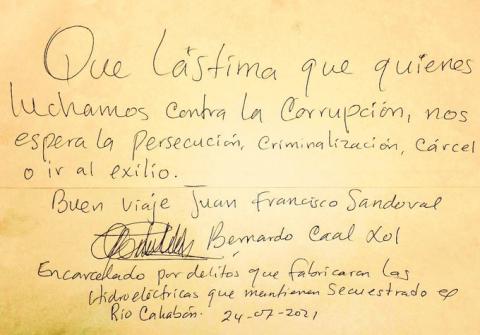 Que lástima que quienes
luchamos contra la Corrupción, nos
espera la Persecución, Criminalización, Cárcel
o ir al exilio.
Buen viaje Juan Francisco Sandoval
Bernardo Caal Xol
Encarcelado por delitos que fabricaron las
Hidroeléctricas que mantienen secuestrado el
Río Cahabón. 24-07-2021